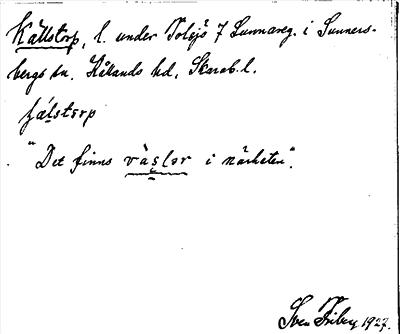 Källstorp, l. under Tolsjö 7 Lunnareg. i Sunners-
bergs sn. Kållands hd, Skarab. l.
fälstorp
"Det finns väslor i närheten".
Sven Friberg 1927.